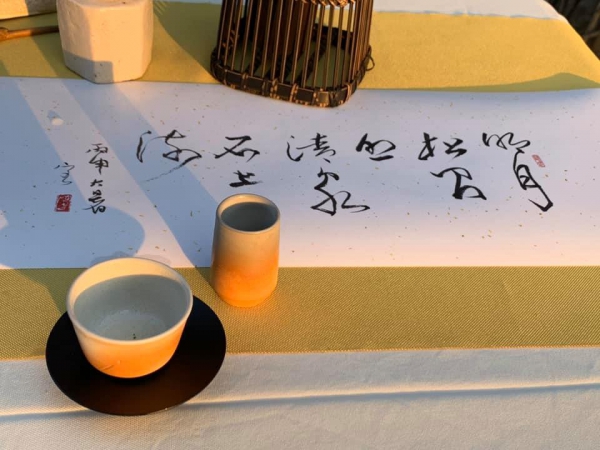 明月
松间
照
清泉
石上
流
丙申大暑